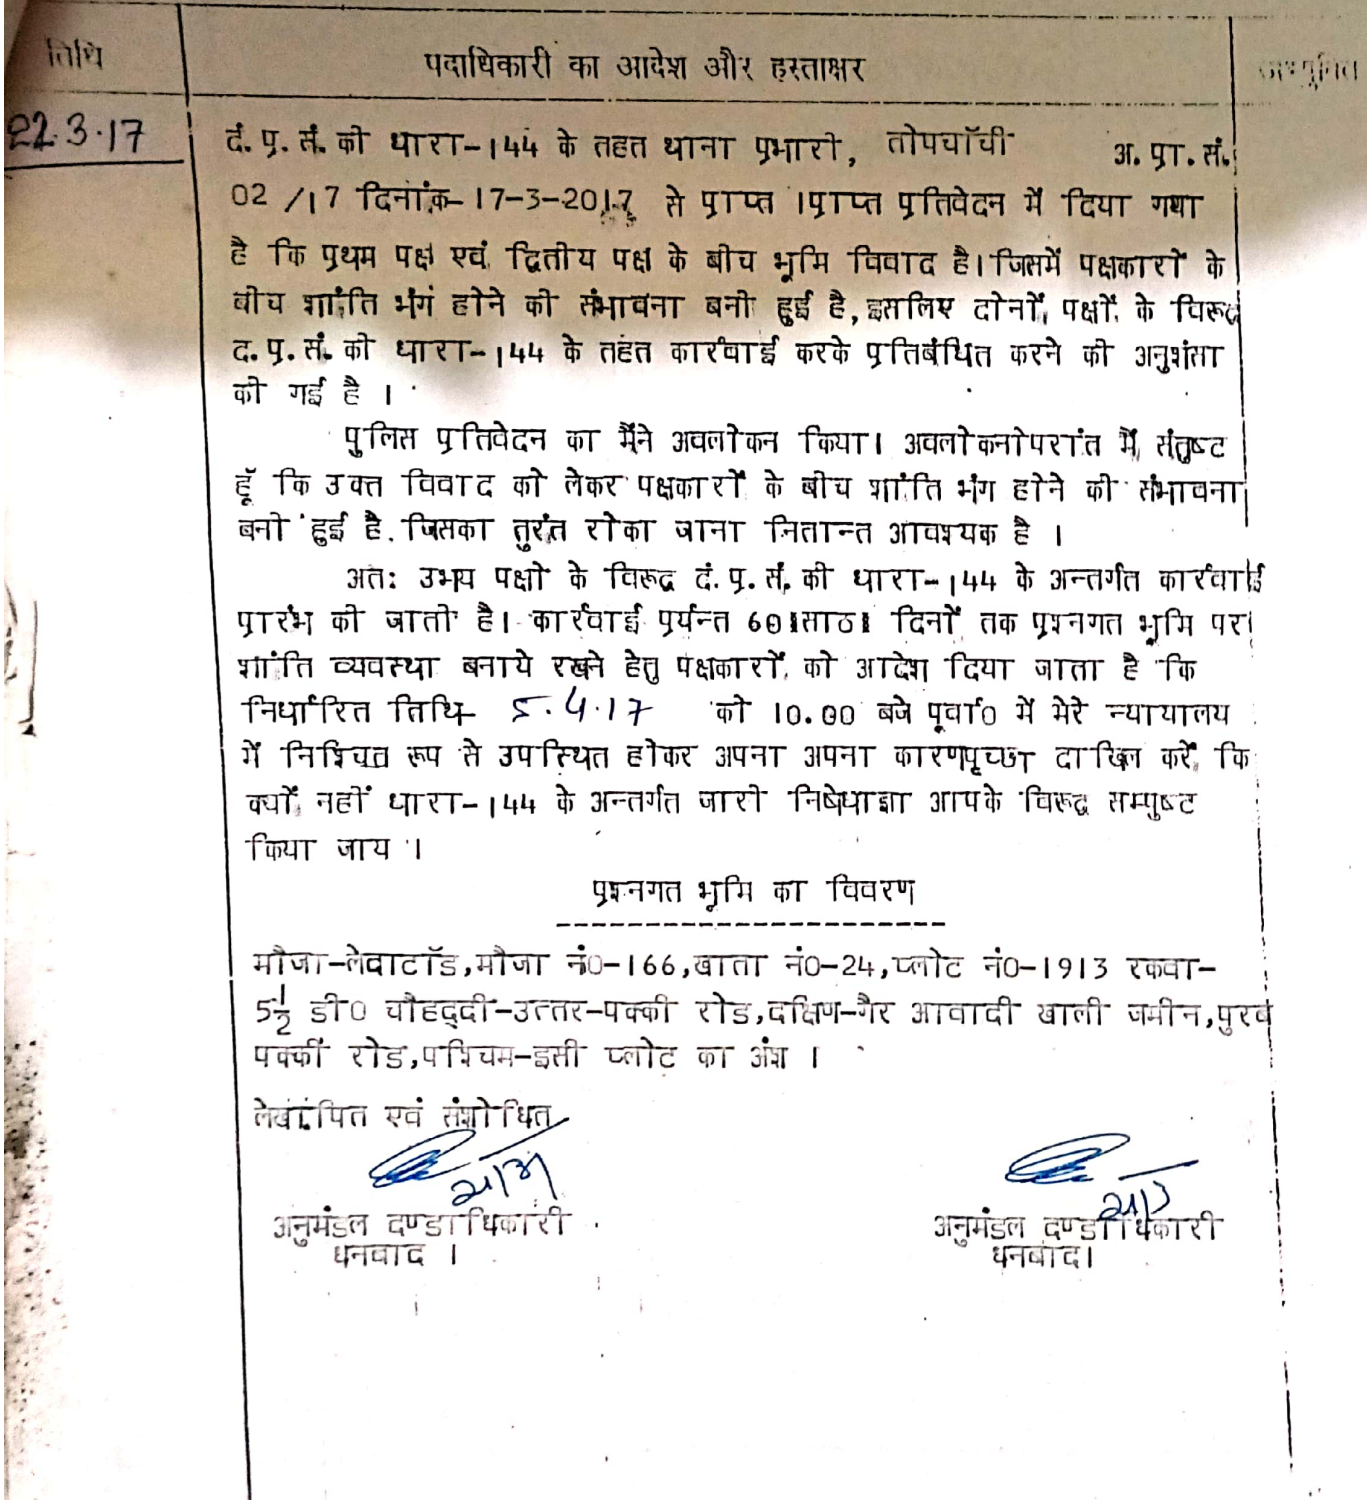 तिथि
पदाधिकारी का आदेश और हस्ताक्षर
22.3.17
दं. प्र. सं. की धारा-144 के तहत थाना प्रभारी, तोपचाँची अ. प्रा. सं.
02 /17 दिनांक- 17-3-2017 से प्राप्त ।प्राप्त प्रतिवेदन में दिया गया
है कि प्रथम पक्ष एवं द्वितीय पक्ष के बीच भूमि विवाद है। जिसमें पक्षकारों के
बीच शांति भंग होने की संभावना बनी हुई है, इसलिए दोनों पक्षों के विरूद्ध
द. प्र. सं. की धारा-144 के तहत कार्रवाई करके प्रतिबंधित करने की अनुशंसा
की गई है ।
पुलिस प्रतिवेदन का मैंने अवलोकन किया। अवलोकनोपरांत मैं संतुष्ट
हूँ कि उक्त विवाद को लेकर पक्षकारों के बीच शांति भंग होने की संभावना
बनी हुई है. जिसका तुरंत रोका जाना नितान्त आवश्यक है ।
अतः उभय पक्षों के विरूद्ध दं. प्र. सं. की धारा-144 के अन्तर्गत कार्रवाई
प्रारंभ की जाती है। कार्रवाई पर्यन्त 60।साठ। दिनों तक प्रश्नगत भूमि पर
शांति व्यवस्था बनाये रखने हेतु पक्षकारों को आदेश दिया जाता है कि
निर्धारित तिथि- 5.4.17 को 10.00 बजे पूर्वा0 में मेरे न्यायालय
में निश्चित रूप से उपस्थित होकर अपना अपना कारणपृच्छा दाखिल करें कि
क्यों नहीं धारा-144 के अन्तर्गत जारी निषेधाज्ञा आपके विरूद्ध सम्पुष्ट
किया जाय ।
प्रश्नगत भूमि का विवरण
मौजा-लेदाटाँड,मौजा नं0-166,खाता नं0-24,प्लोट नं0-1913 रकवा-
5½ डी0 चौहद्दी-उत्तर-पक्की रोड,दक्षिण-गैर आवादी खाली जमीन,पुरब
पक्की रोड,पश्चिम-इसी प्लोट का अंश ।
लेखापित एवं संशोधित
अनुमंडल दण्डाधिकारी
धनबाद ।
अनुमंडल दण्डाधिकारी
धनबाद।